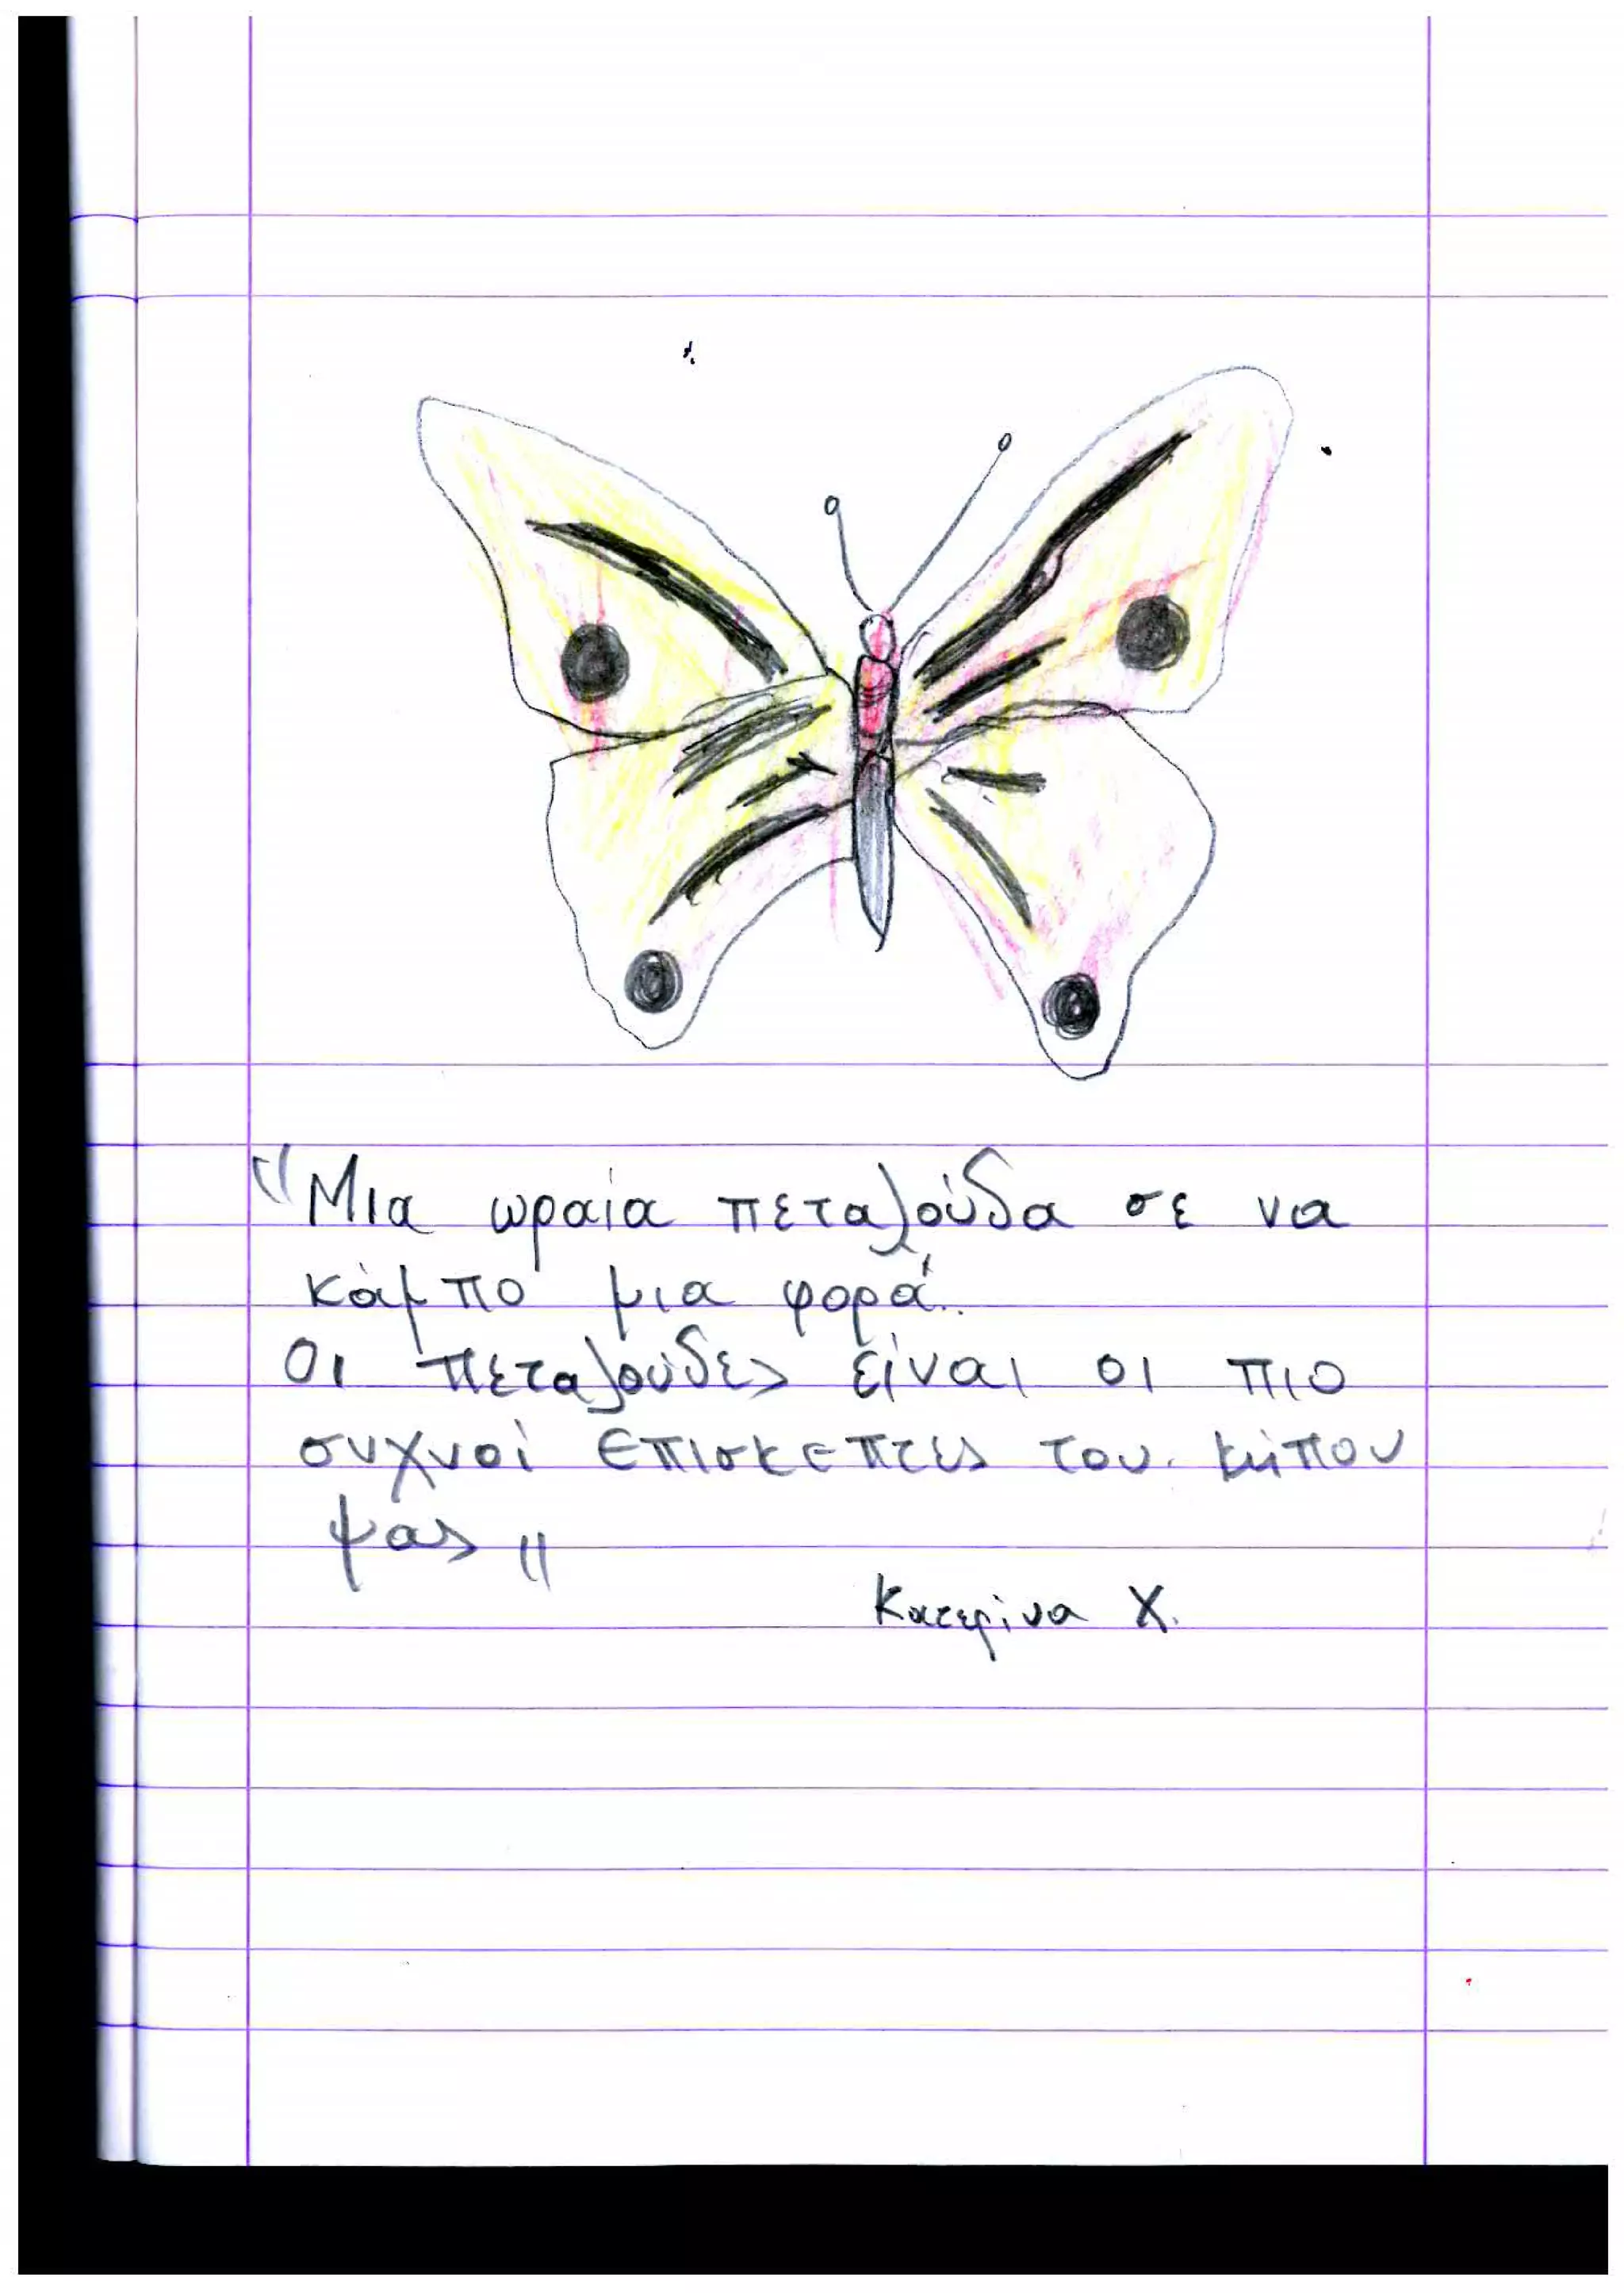 "Μια ωραία πεταλούδα σε να
κάμπο μια φορά..
Οι πεταλούδες είναι οι πιο
συχνοί επισκεπτες του κήπου
μας"
Κατερίνα Χ.